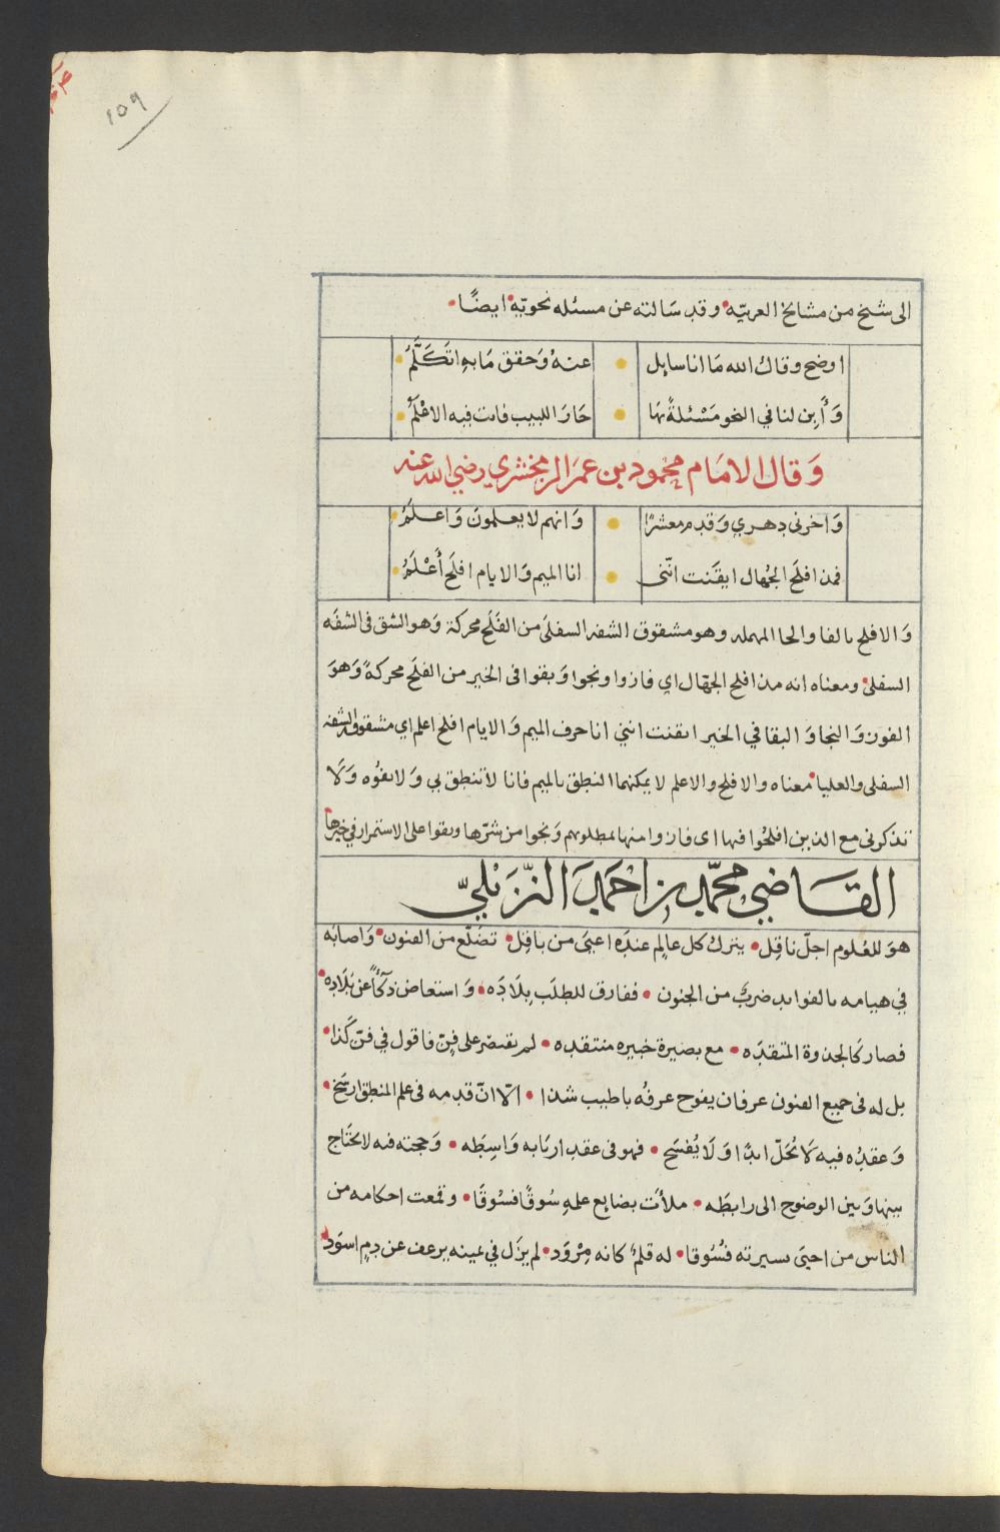 ١٥٩
الى شيخ من مشايخ العربيّه وقد سَالته عن مسئله نحويّة ايضًا
اوضح وقاك الله مَا انا سايل عنهُ وَحقق مَا به اتَكَلَّمُ
وَأَبِن لنا في النحو مَسْئلةً بهَا حَارَ اللبيب فانت فيه الاعْلَمُ
وَقال الامَام محمود بن عمَر الزمخشري رضي الله عنه
وَاخرنى دهري وَقدم معشرًا وَانهم لا يعلمون وَاعلمُ
فمذ افلَح الجُهال ايقَنت انّنى انا الميم وَالايام افلَح أَعْلَمُ
وَالافلح بالفا والحا المهمله وهو مشقوق الشفه السفلىَ من الفَلَح محركة وَهو الشق فى الشفَه
السفلىَ ومعناه انه مذ افلح الجهّال اي فازوا ونجوا وَبقوا فى الخير من الفلَح محركةً وَهوَ
الفوز وَالنجا وَالبقا في الخير ايقنت انني انا حرف الميم وَالايام افلح اعلم اي مشقوق الشفه
السفلى والعليا معناه والافلح والاعلم لا يمكنهما النطق بالميم فانا لا تنطق بي وَلا تفوُه وَلَا
تذكرني مع الذين افلحُوا فيها اى فازوا منها بمطلوبهم وَنجوا من شرّها وبقوا على الاستمرار في خيرها
القَاضي محمّد بن احمَد النزيليّ
هوَ للعُلوم اجلّ ناقِل يترك كل عالِم عندَه اعيىَ من باقِل تضَلّع من الفنون وَاصابَه
في هيامه بالفوايد ضربٌ من الجنون ففارق للطلَب بِلَادَه وَاستعاض ذكآءً عن بَلَادِه
فصار كَالجذوة المتقدَه مع بصيرة خبيره منتقده لم يقتصَر على فنّ فاقول في فنّ كَذا
بل له فى جميع الفنون عرفان يفوح عرفُه باطيب شذا الّا انّ قدمه فى علم المنطق ارسَخ
وَعقدُه فيه لَا تُحَلّ ابدًا وَلَا يُفْسَخ فهو فى عقدِ اربَابه وَاسِطَه وَحجته فيه لا تحتَاج
بينها وَبين الوضوح الى رابطَه ملأت بضايع علمِهِ سُوقًا فسُوقَا وقمعت احكامه من
الناس من احيىَ بسيرته فسُوقا له قلمٌ كانه مِرْوَد لم يزَل في عينه يرعف عن دمٍ اسوَد